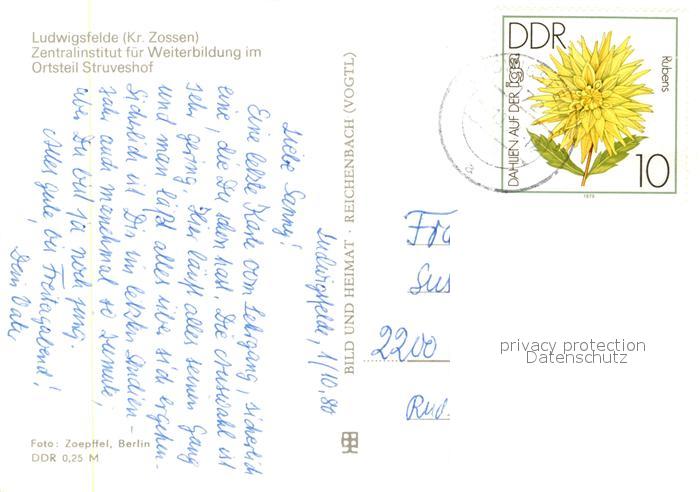 Ludwigsfelde (Kr. Zossen)
Zentralinstitut für Weiterbildung im
Ortsteil Struveshof
Ludwigsfelde, 1/10.80
Liebe Sanny!
Eine letzte Karte vom Lehrgang, sicherlich
eine, die Du schon hast. Die Auswahl ist
sehr gering. Hier läuft alles seinen Gang
und man läßt alles über sich ergehen.
Sicherlich ist Dir im letzten Studien-
jahr auch manchmal so zumute,
aber Du bist ja noch jung.
Alles Gute, bis Freitagabend!
Dein Vater
Foto: Zoepffel, Berlin
DDR 0,25 M
BILD UND HEIMAT · REICHENBACH (VOGTL)
DDR
DAHLIEN AUF DER iga
Rubens
10
1979
2200
privacy protection
Datenschutz